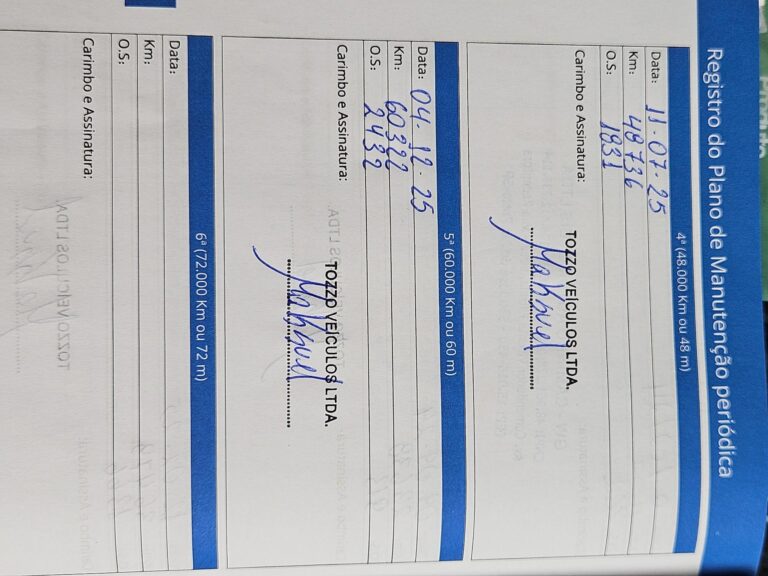 Registro do Plano de Manutenção periódica
4ª (48.000 Km ou 48 m)
Data: 11.07.25
Km: 48736
O.S: 1831
Carimbo e Assinatura:
TOZZO VEÍCULOS LTDA.
5ª (60.000 Km ou 60 m)
Data: 04.12.25
Km: 60322
O.S: 2432
Carimbo e Assinatura:
TOZZO VEÍCULOS LTDA.
6ª (72.000 Km ou 72 m)
Data:
Km:
O.S:
Carimbo e Assinatura: